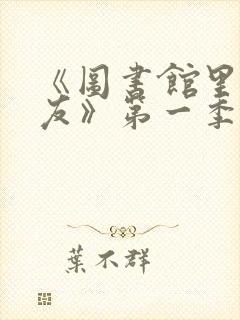 《圖書館里
友》第一季
葉不群